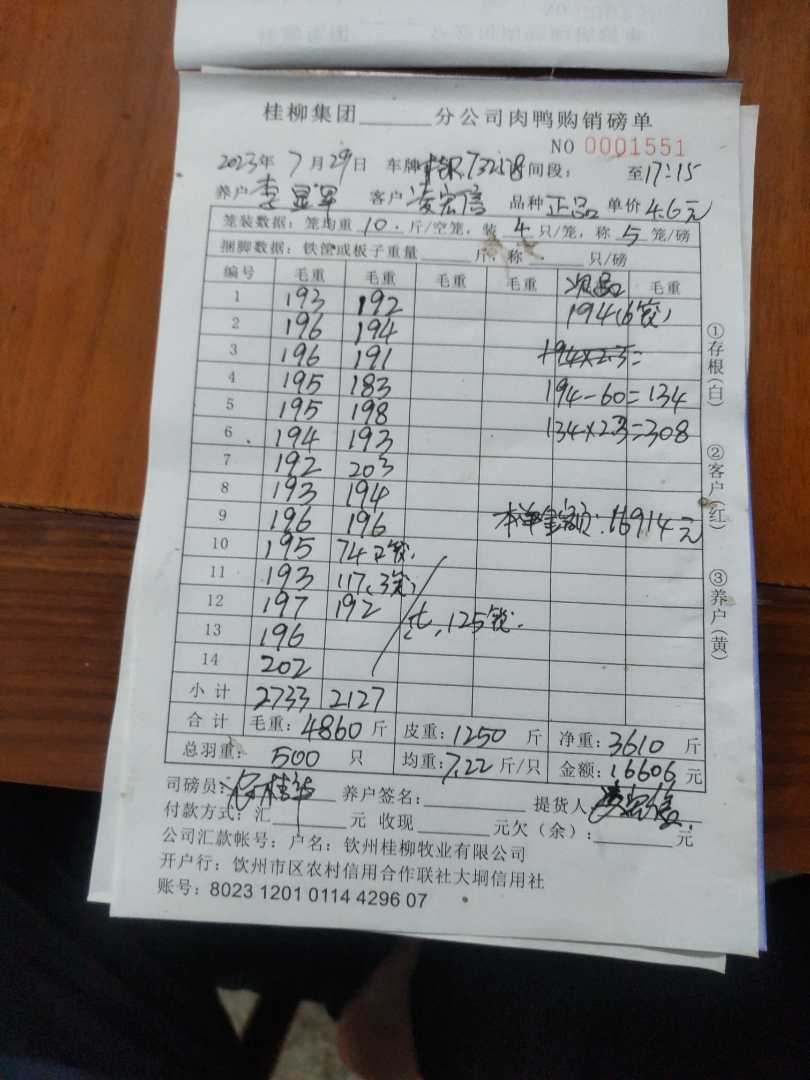 桂柳集团______分公司肉鸭购销磅单
NO 0001551
2023年 7月29日 车牌 732578 时间段: 至17:15
养户 李显军 客户 凌宏信 品种 正品 单价 4.6元
笼装数据: 笼均重 10. 斤/空笼, 装 4 只/笼, 称 5 笼/磅
捆脚数据: 铁 或板子重量______斤, 称______只/磅
编号 毛重 毛重 毛重 毛重 次品 毛重
1 193 192 194(6笼)
2 196 194
3 196 191 194×2.3=
4 195 183 194-60=134
5 195 198 134×2.3=308
6 194 193
7 192 203
8 193 194
9 196 196 本单金额: 16914元
10 195 74 2笼.
11 193 117, 3笼,
12 197 192 共, 125笼.
13 196
14 202
小计 2733 2127
合计 毛重: 4860 斤 皮重: 1250 斤 净重: 3610 斤
总羽重: 500 只 均重: 7.22 斤/只 金额: 16606 元
司磅员: 养户签名: 提货人 凌宏信
付款方式: 汇______元 收现______元欠(余):______元
公司汇款帐号: 户名: 钦州桂柳牧业有限公司
开户行: 钦州市区农村信用合作联社大垌信用社
账号: 8023 1201 0114 4296 07
①存根(白)
②客户(红)
③养户(黄)